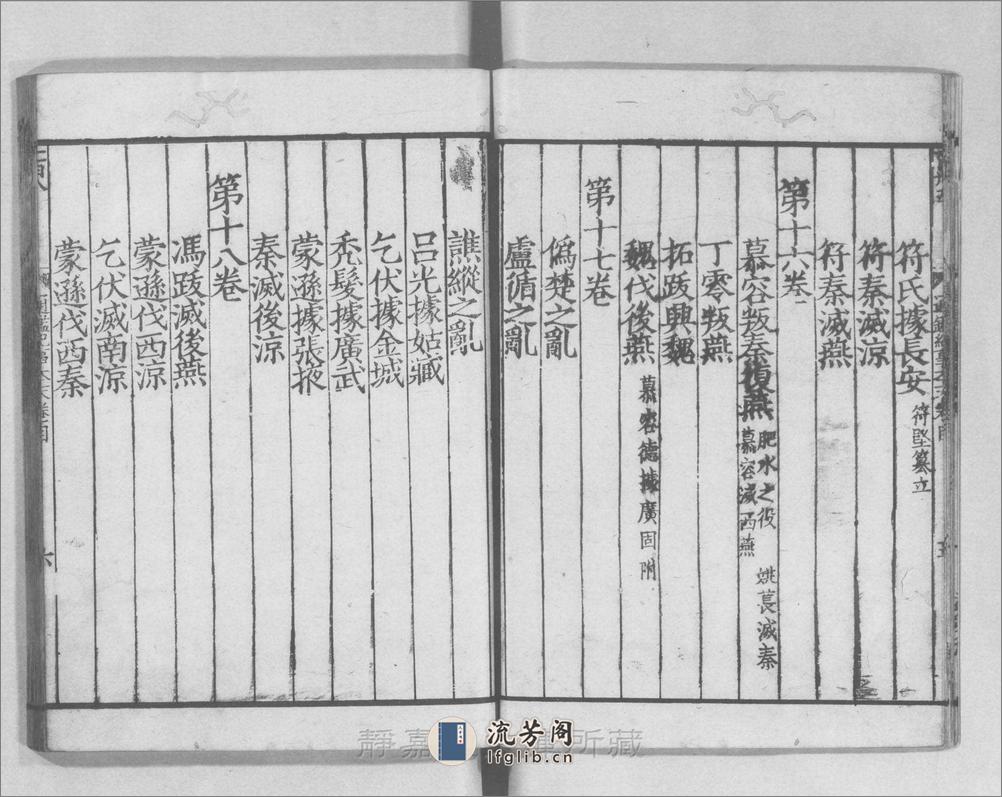 符氏據長安 符堅篡立
符秦滅涼
符秦滅燕
第十六卷
慕容叛秦復燕 肥水之役 慕容滅西燕 姚萇滅秦
丁零叛燕
拓跋興魏
魏伐後燕 慕容德據廣固附
第十七卷
僞楚之亂
盧循之亂
譙縱之亂
呂光據姑臧
乞伏據金城
禿髮據廣武
蒙遜據張掖
秦滅後涼
第十八卷
馮跋滅後燕
蒙遜伐西涼
乞伏滅南涼
蒙遜伐西秦
六
靜嘉 所藏
流芳阁
lfglib.cn